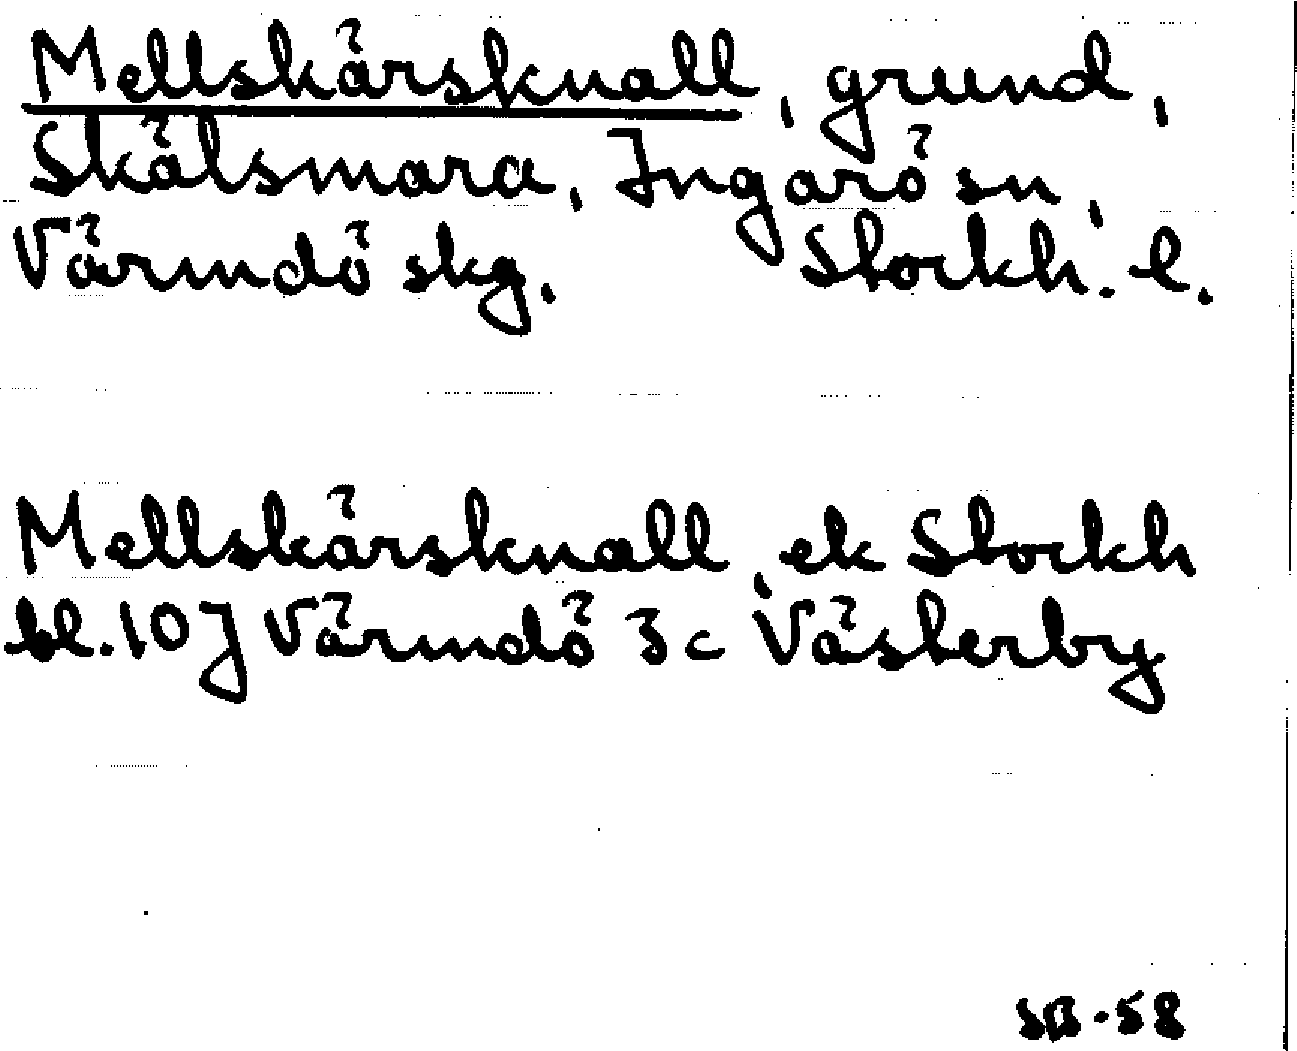 Mellskärsknall, grund,
Skälsmara, Ingarö sn,
Värmdö skg. Stockh. l.
Mellskärsknall, ek Stockh
bl. 10J Värmdö 3c Västerby
SB-58